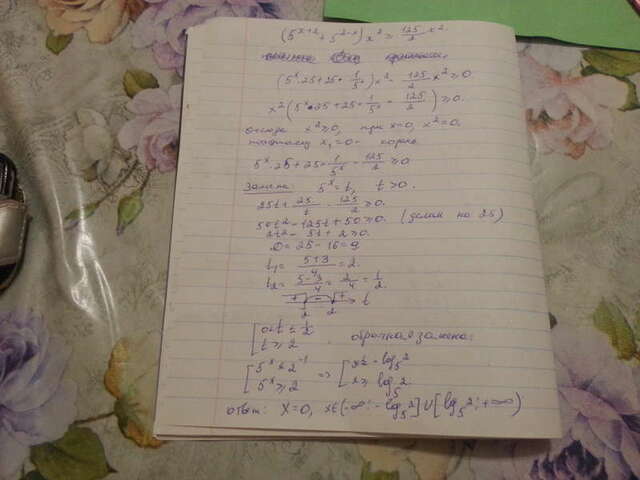 (5^(x+2) + 5^(2-x)) x² ≥ 125/2 x²
(5^x · 25 + 25 · 1/5^x) x² - 125/2 x² ≥ 0.
x² (5^x · 25 + 25 · 1/5^x - 125/2) ≥ 0.
отсюда x² ≥ 0, при x=0, x² = 0.
поэтому x₁ = 0 - корень
5^x · 25 + 25 · 1/5^x - 125/2 ≥ 0
Замена: 5^x = t, t > 0.
25t + 25/t - 125/2 ≥ 0.
50t² - 125t + 50 ≥ 0. (делим на 25)
2t² - 5t + 2 ≥ 0.
D = 25 - 16 = 9
t₁ = (5+3)/4 = 2.
t₂ = (5-3)/4 = 2/4 = 1/2.
+ - + t
1/2 2
[ 0 < t ≤ 1/2
[ t ≥ 2 обратная замена:
[ 5^x ≤ 2^(-1) => [ x ≤ - log₅ 2
[ 5^x ≥ 2 [ x ≥ log₅ 2
ответ: X = 0, x ∈ (-∞; - log₅ 2] ∪ [log₅ 2; +∞)